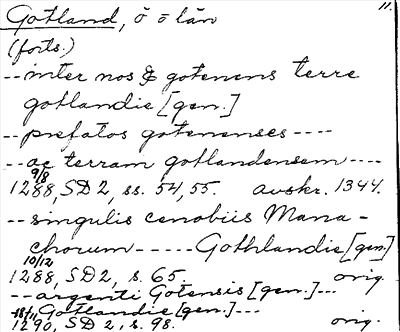 11.
Gotland, ö o län
(forts.)
--inter nos & gotenens terre
gotlandie [gen.]
--prefatos gotenenses----
--ac terram gotlandensem----
9/8
1288, SD2, ss. 54, 55. avskr. 1344.
--singulis cenobiis Mona-
chorum-----Gothlandie [gen.]
10/12
1288, SD2, s. 65. orig.
--argenti Gotensis [gen.]---
Gotlandie [gen.]---
1290, SD2, s. 98. orig.